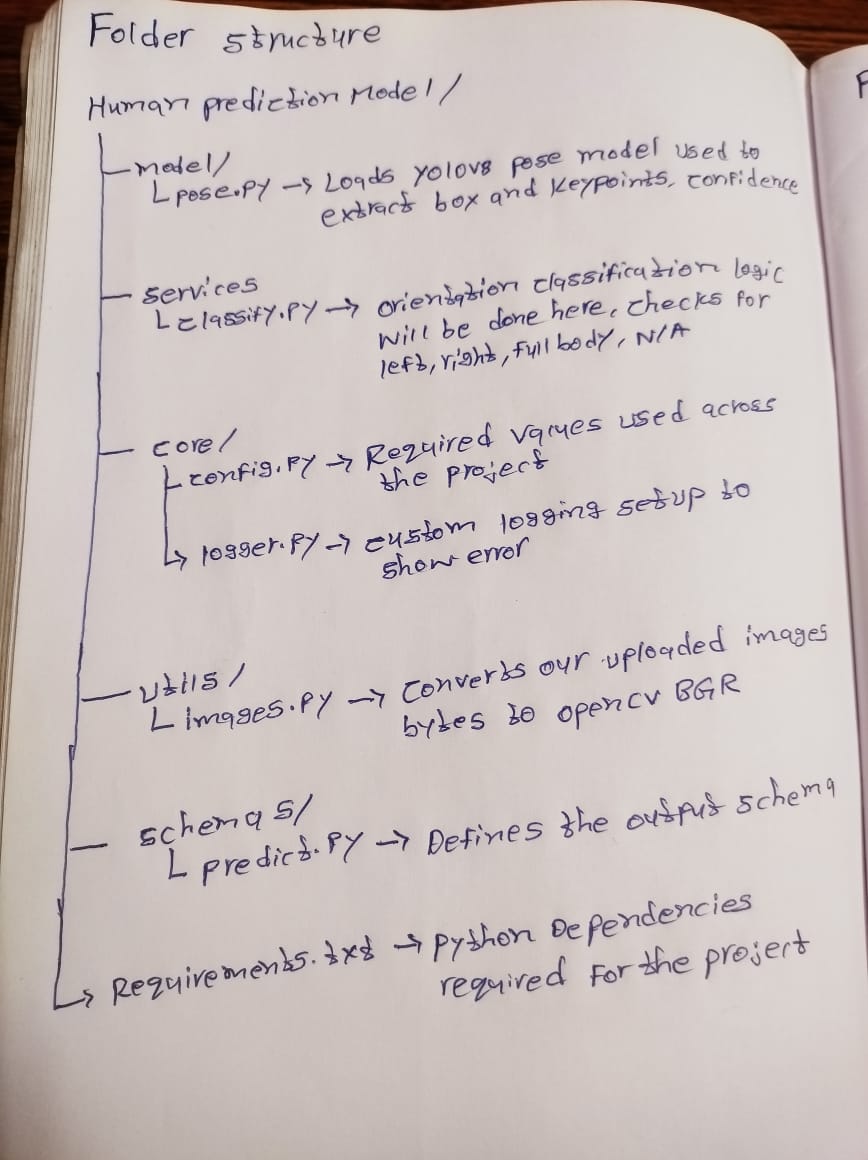 Folder structure
Human prediction Model/
model/
pose.py → Loads yolov8 pose model used to
extract box and keypoints, confidence
services
classify.py → orientation classification logic
will be done here, checks for
left, right, full body, N/A
core/
config.py → Required values used across
the project
logger.py → custom logging setup to
show error
utils/
images.py → converts our uploaded images
bytes to opencv BGR
schemas/
predict.py → Defines the output schema
Requirements.txt → python Dependencies
required for the project
F